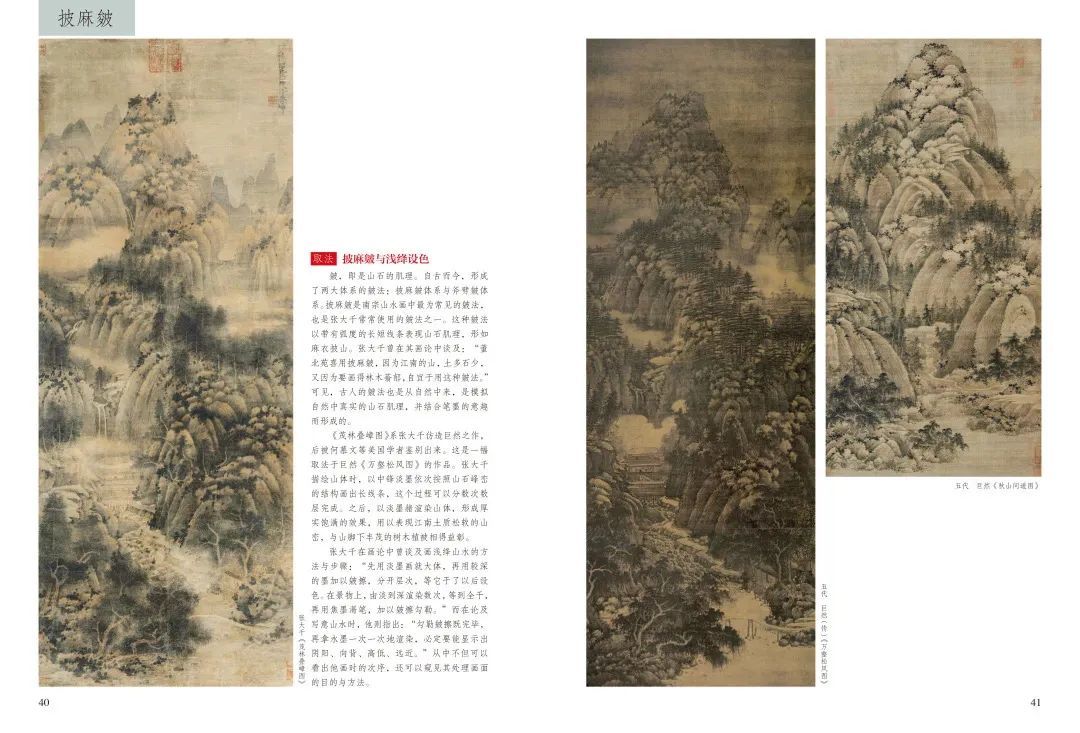 披麻皴
取法 披麻皴与浅绛设色
皴，即是山石的肌理。自古而今，形成
了两大体系的皴法：披麻皴体系与斧劈皴体
系。披麻皴是南宗山水画中最为常见的皴法，
也是张大千常常使用的皴法之一。这种皴法
以带有弧度的长短线条表现山石肌理，形如
麻衣披山。张大千曾在其画论中谈及：“董
北苑喜用披麻皴，因为江南的山，土多石少，
又因为要画得林木蓊郁，自宜于用这种皴法。”
可见，古人的皴法也是从自然中来，是模拟
自然中真实的山石肌理，并结合笔墨的意趣
而形成的。
《茂林叠嶂图》系张大千仿造巨然之作，
后被何慕文等美国学者鉴别出来。这是一幅
取法于巨然《万壑松风图》的作品。张大千
描绘山体时，以中锋淡墨依次按照山石峰峦
的结构画出长线条，这个过程可以分数次数
层完成。之后，以淡墨赭渲染山体，形成厚
实饱满的效果，用以表现江南土质松软的山
峦，与山脚下丰茂的树木植被相得益彰。
张大千在画论中曾谈及画浅绛山水的方
法与步骤：“先用淡墨画就大体，再用较深
的墨加以皴擦，分开层次，等它干了以后设
色。在景物上，由淡到深渲染数次，等到全干，
再用焦墨渴笔，加以皴擦勾勒。”而在论及
写意山水时，他则指出：“勾勒皴擦既完毕，
再拿水墨一次一次地渲染，必定要能显示出
阴阳、向背、高低、远近。”从中不但可以
看出他画时的次序，还可以窥见其处理画面
的目的与方法。
张大千《茂林叠嶂图》
40
五代 巨然（传）《万壑松风图》
五代 巨然《秋山问道图》
41